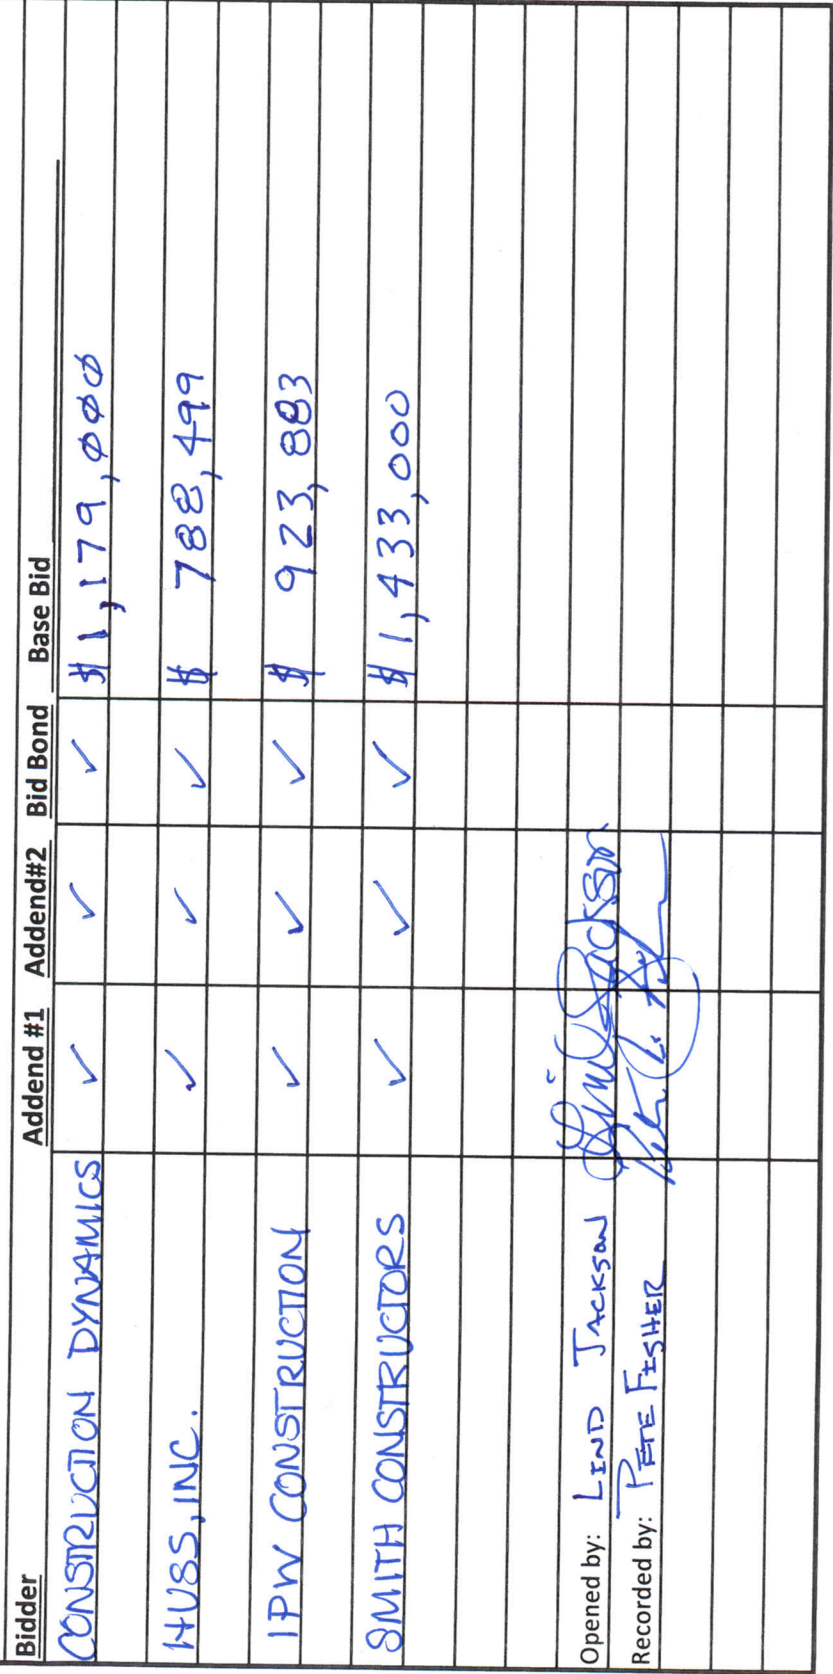 Bidder Addend #1 Addend#2 Bid Bond Base Bid
CONSTRUCTION DYNAMICS ✓ ✓ ✓ $1,179,000
HUSS, INC. ✓ ✓ ✓ $ 788,499
IPW CONSTRUCTION ✓ ✓ ✓ $ 923,883
SMITH CONSTRUCTORS ✓ ✓ ✓ $1,433,000
Opened by: LIND JACKSON Lind Jackson
Recorded by: PETE FISHER